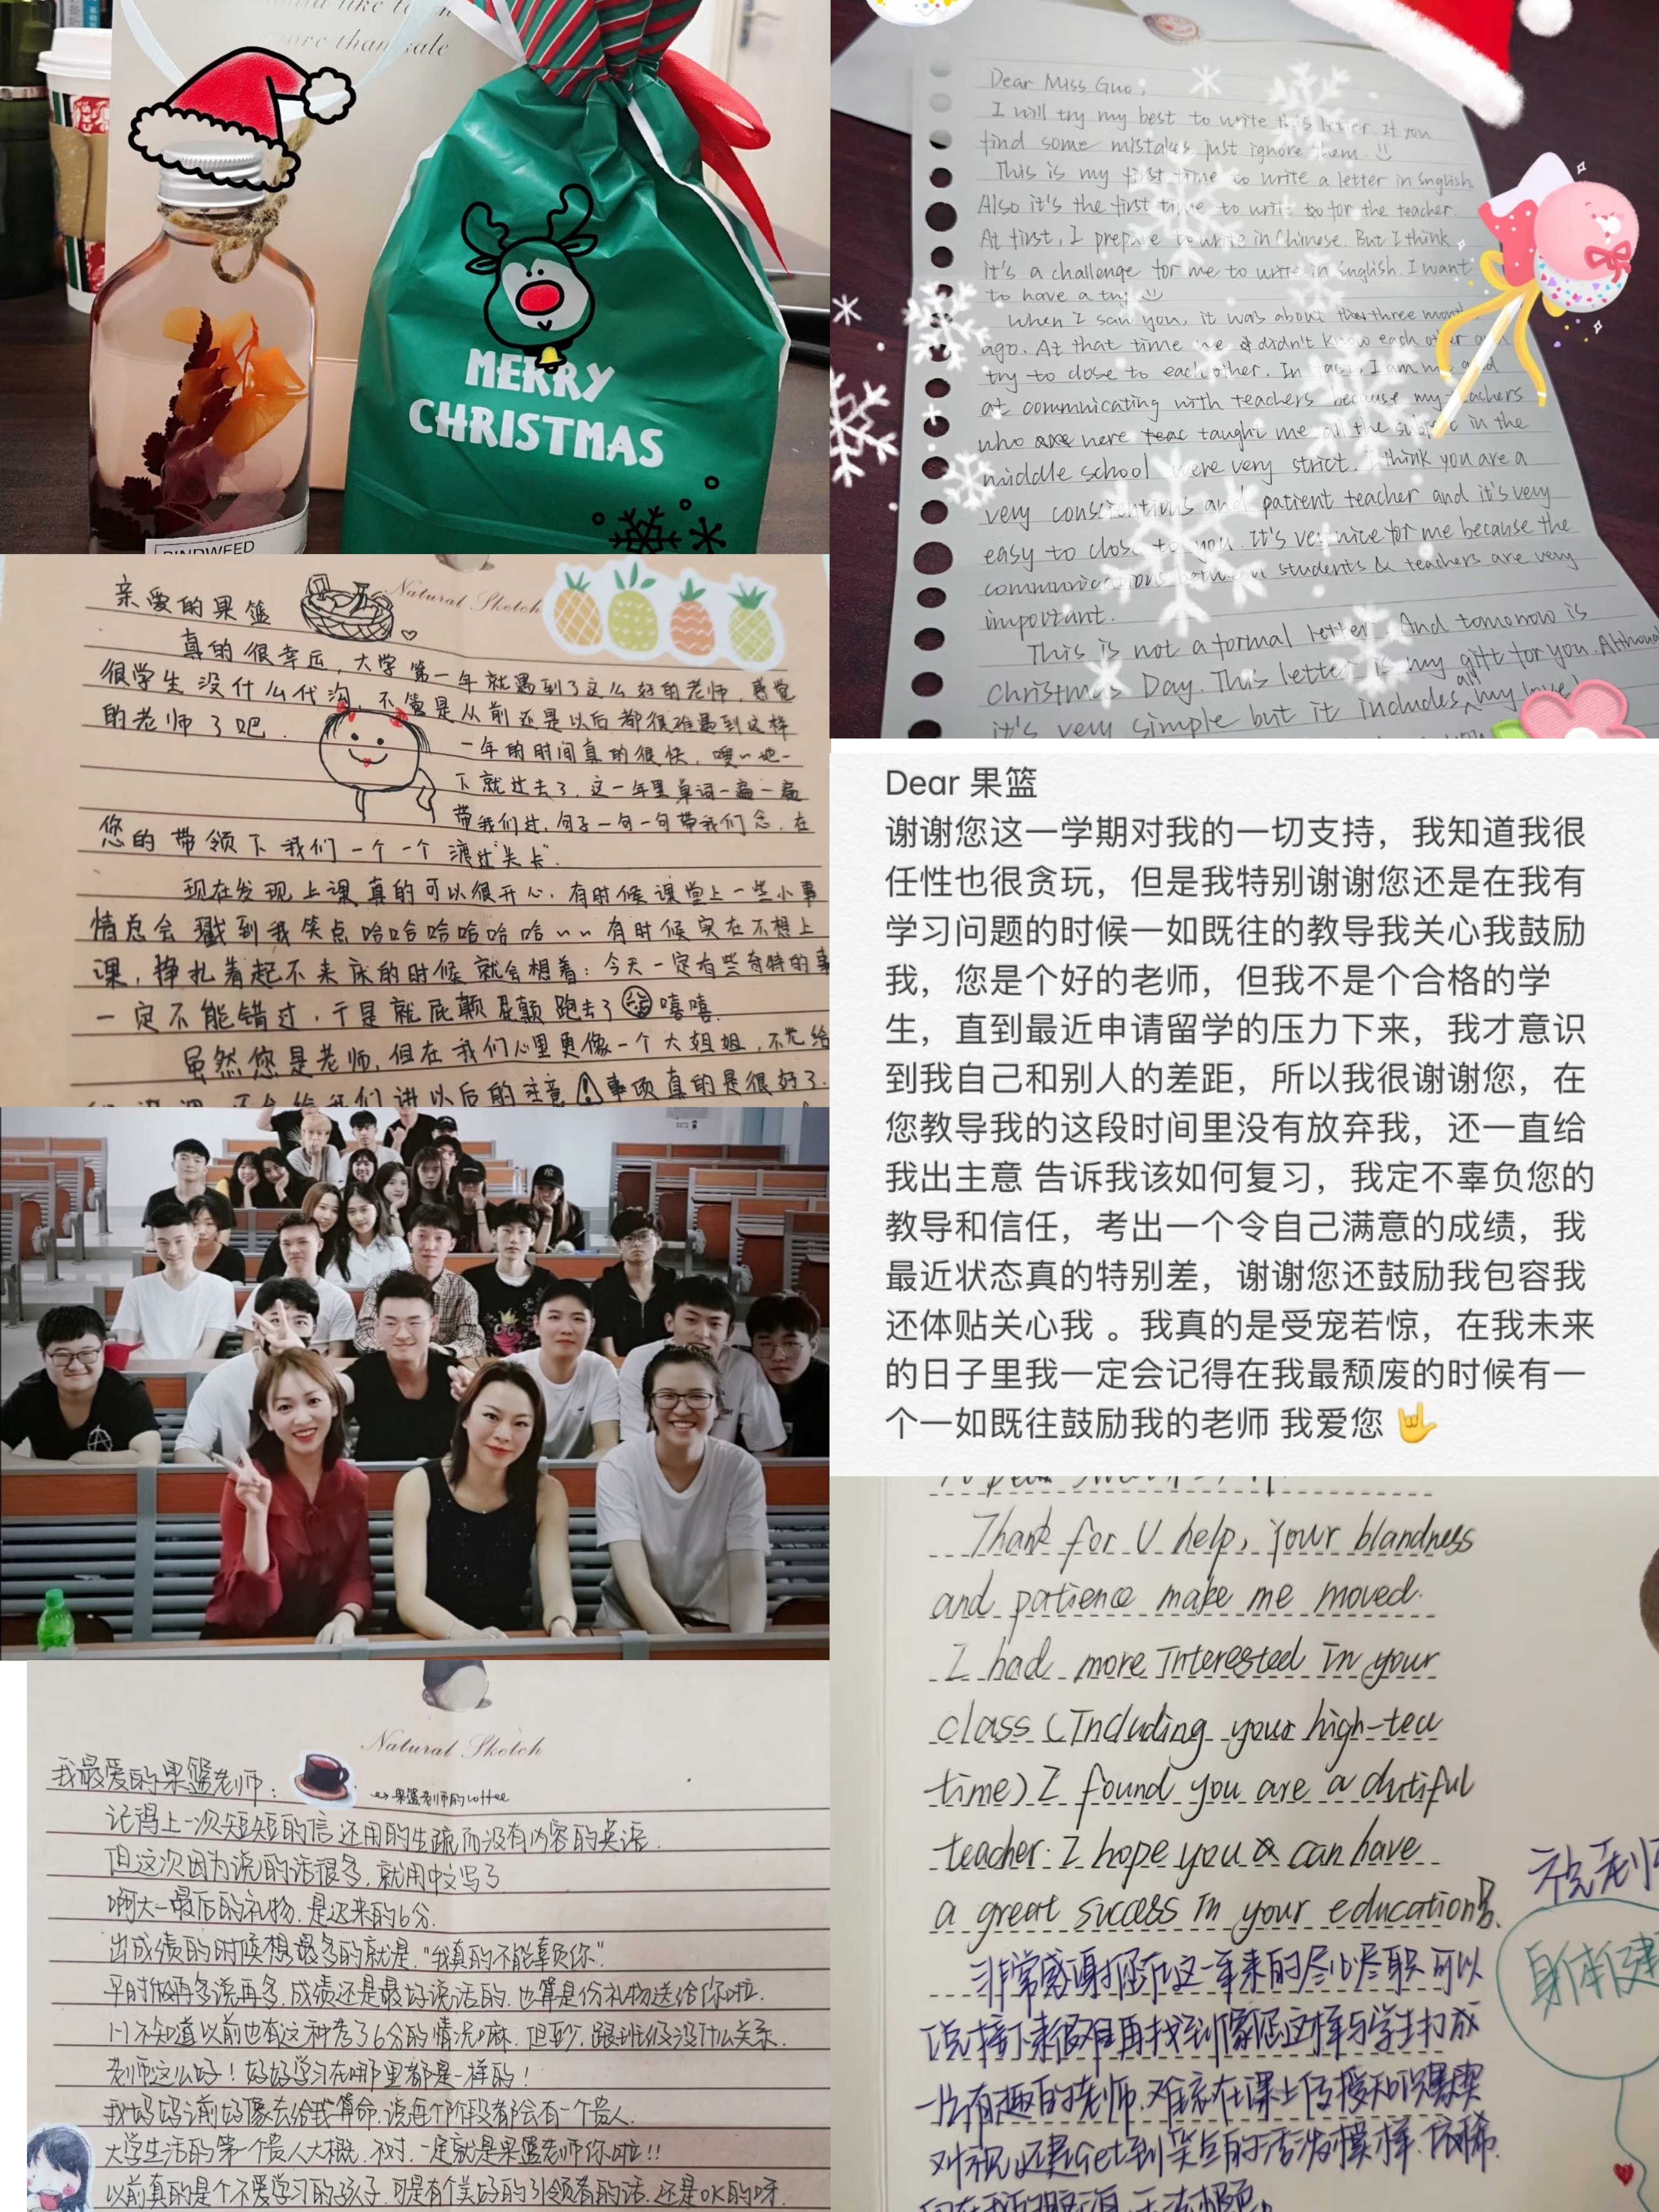 would like to
more than sale
MERRY
CHRISTMAS
BINDWEED
Dear Miss Guo,
I will try my best to write this letter. If you
find some mistakes just ignore them.
This is my first time to write a letter in English.
Also it's the first time to write to for the teacher.
At first, I prepare to write in Chinese. But I think
it's a challenge for me to write in English. I want
to have a try
When I saw you, it was about three month
ago. At that time we didn't know each other and
try to close to each other. In fact, I am
at commnicating with teachers because my teachers
who were taught me all the subject in the
middle school were very strict. I think you are a
very conscientious and patient teacher and it's very
easy to close to you. It's very nice for me because the
communications between students & teachers are very
important.
This is not a formal letter. And tomorrow is
christmas Day. This letter is my gift for you. Althou
it's very simple but it includes all my love!
亲爱的果篮
Natural Sketch
真的很幸运，大学第一年就遇到了这么好的老师，感觉
很学生没什么代沟，不管是从前还是以后都很难遇到这样
的老师了吧．
一年的时间真的很快，嗖~地一
下就过去了，这一年里单词一遍一遍
带我们过，句子一句一句带我们念，在
您的带领下我们一个一个渡过"关卡"．
现在发现上课真的可以很开心，有时候课堂上一些小事
情总会戳到我笑点哈哈哈哈哈哈~~有时候实在不想上
课，挣扎着起不来床的时候就会想着：今天一定有些奇特的事
一定不能错过，于是就屁颠屁颠跑去了嘻嘻．
虽然您是老师，但在我们心里更像一个大姐姐，不光给
们讲课，还会给我们讲以后的注意事项真的是很好了．
Dear 果篮
谢谢您这一学期对我的一切支持，我知道我很
任性也很贪玩，但是我特别谢谢您还是在我有
学习问题的时候一如既往的教导我关心我鼓励
我，您是个好的老师，但我不是个合格的学
生，直到最近申请留学的压力下来，我才意识
到我自己和别人的差距，所以我很谢谢您，在
您教导我的这段时间里没有放弃我，还一直给
我出主意 告诉我该如何复习，我定不辜负您的
教导和信任，考出一个令自己满意的成绩，我
最近状态真的特别差，谢谢您还鼓励我包容我
还体贴关心我 。我真的是受宠若惊，在我未来
的日子里我一定会记得在我最颓废的时候有一
个一如既往鼓励我的老师 我爱您 🤟
Natural Sketch
我最爱的果篮老师：
→果篮老师的coffee
记得上一次短短的信还用的生疏而没有内容的英语．
但这次因为说的话很多，就用中文写了
啊大一最后的礼物，是迟来的6分．
出成绩的时候想最多的就是，"我真的不能辜负你"
平时做再多说再多，成绩还是最好说话的，也算是份礼物送给你啦．
不知道以前也有这种考了6分的情况嘛，但至少，跟班级没什么关系．
老师这么好！好好学习在哪里都是一样的！
我妈妈之前好像去给我算命，说每个阶段都会有一个贵人．
大学生活的第一个贵人大概，不对，一定就是果篮老师你啦!!
以前真的是个不爱学习的孩子，可是有个美好的引领者的话，还是OK的呀．
Thank for U help, Your blandness
and patience make me moved.
I had more Interested In your
class (Including your high-tea
time) I found you are a dutiful
teacher. I hope you can have
a great success In your education
非常感谢您在这一年来的尽心尽职 可以
说接下来很难再找到像您这样与学生打成
一片有趣的老师，难忘在课上传授知识
对视还是get到笑点的模样，依稀
祝老师
身体健